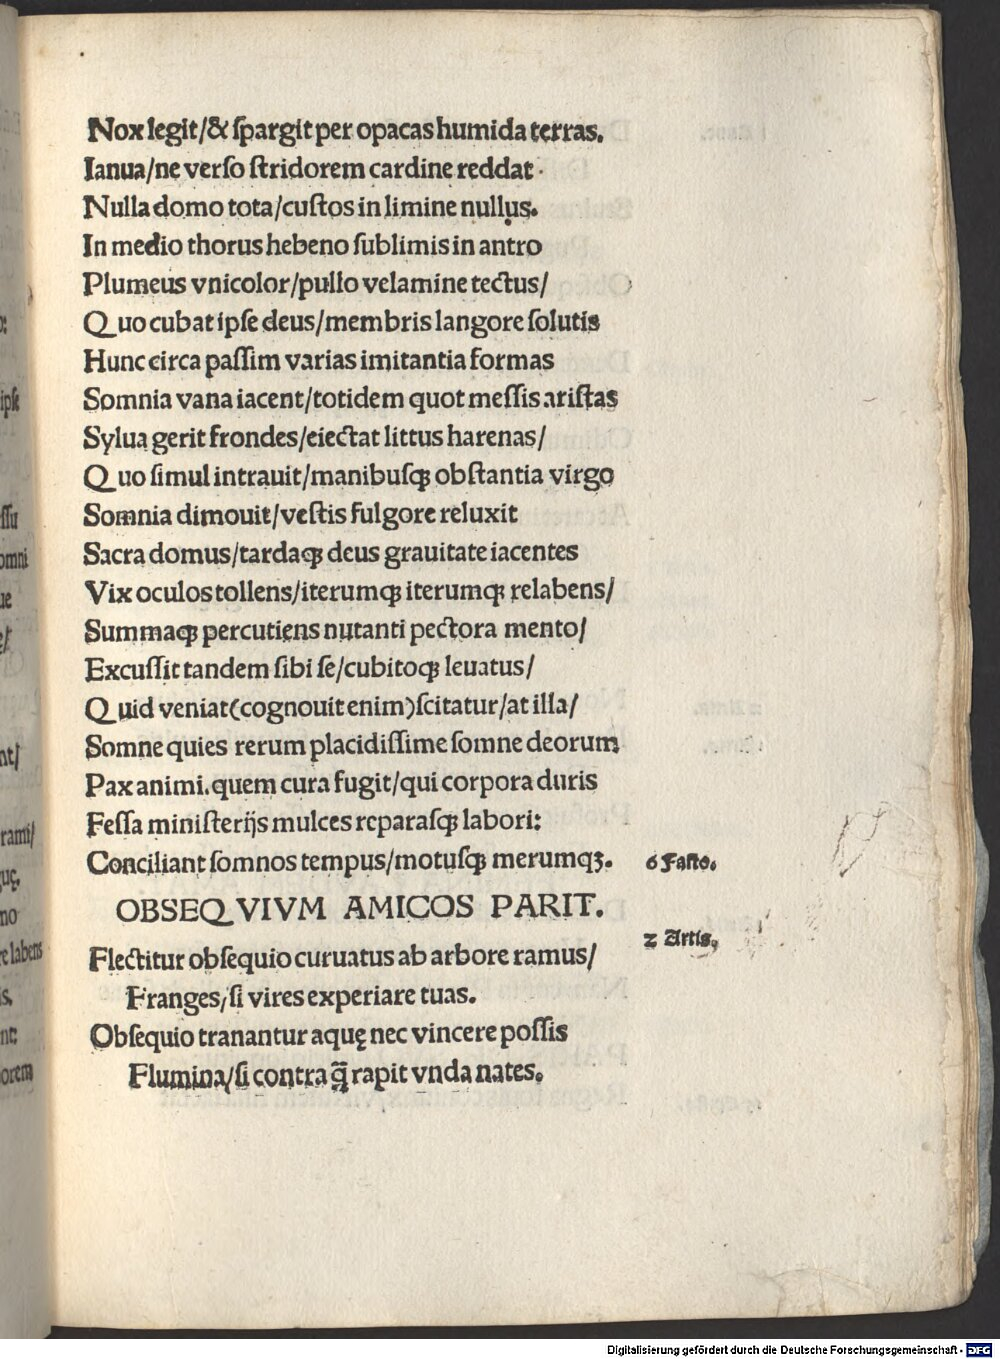 Nox legit/& ſpargit per opacas humida terras.
Ianua/ne verſo ſtridorem cardine reddat·
Nulla domo tota/cuſtos in limine nullus.
In medio thorus hebeno ſublimis in antro
Plumeus vnicolor/pullo velamine tectus/
Quo cubat ipſe deus/membris langore ſolutis
Hunc circa paſſim varias imitantia formas
Somnia vana iacent/totidem quot meſſis ariſtas
Sylua gerit frondes/eiectat littus harenas/
Quo ſimul intrauit/manibuſꝗ obſtantia virgo
Somnia dimouit/veſtis fulgore reluxit
Sacra domus/tardaꝗ deus grauitate iacentes
Vix oculos tollens/iterumꝗ iterumꝗ relabens/
Summaꝗ percutiens nutanti pectora mento/
Excuſſit tandem ſibi ſe/cubitoꝗ leuatus/
Quid veniat(cognouit enim)ſcitatur/at illa/
Somne quies rerum placidiſſime ſomne deorum
Pax animi.quem cura fugit/qui corpora duris
Feſſa miniſterijs mulces reparaſꝗ labori:
Conciliant ſomnos tempus/motuſꝗ merumqꝫ. 6 Faſto.
OBSEQVIVM AMICOS PARIT.
2 Artis.
Flectitur obſequio curuatus ab arbore ramus/
Franges/ſi vires experiare tuas.
Obſequio tranantur aquę nec vincere poſſis
Flumina/ſi contra q̃ rapit vnda nates.
ipſe
ſſu
omni
ue
rami/
uę.
no
e labens
is.
orem
Digitalisierung gefördert durch die Deutsche Forschungsgemeinschaft - DFG